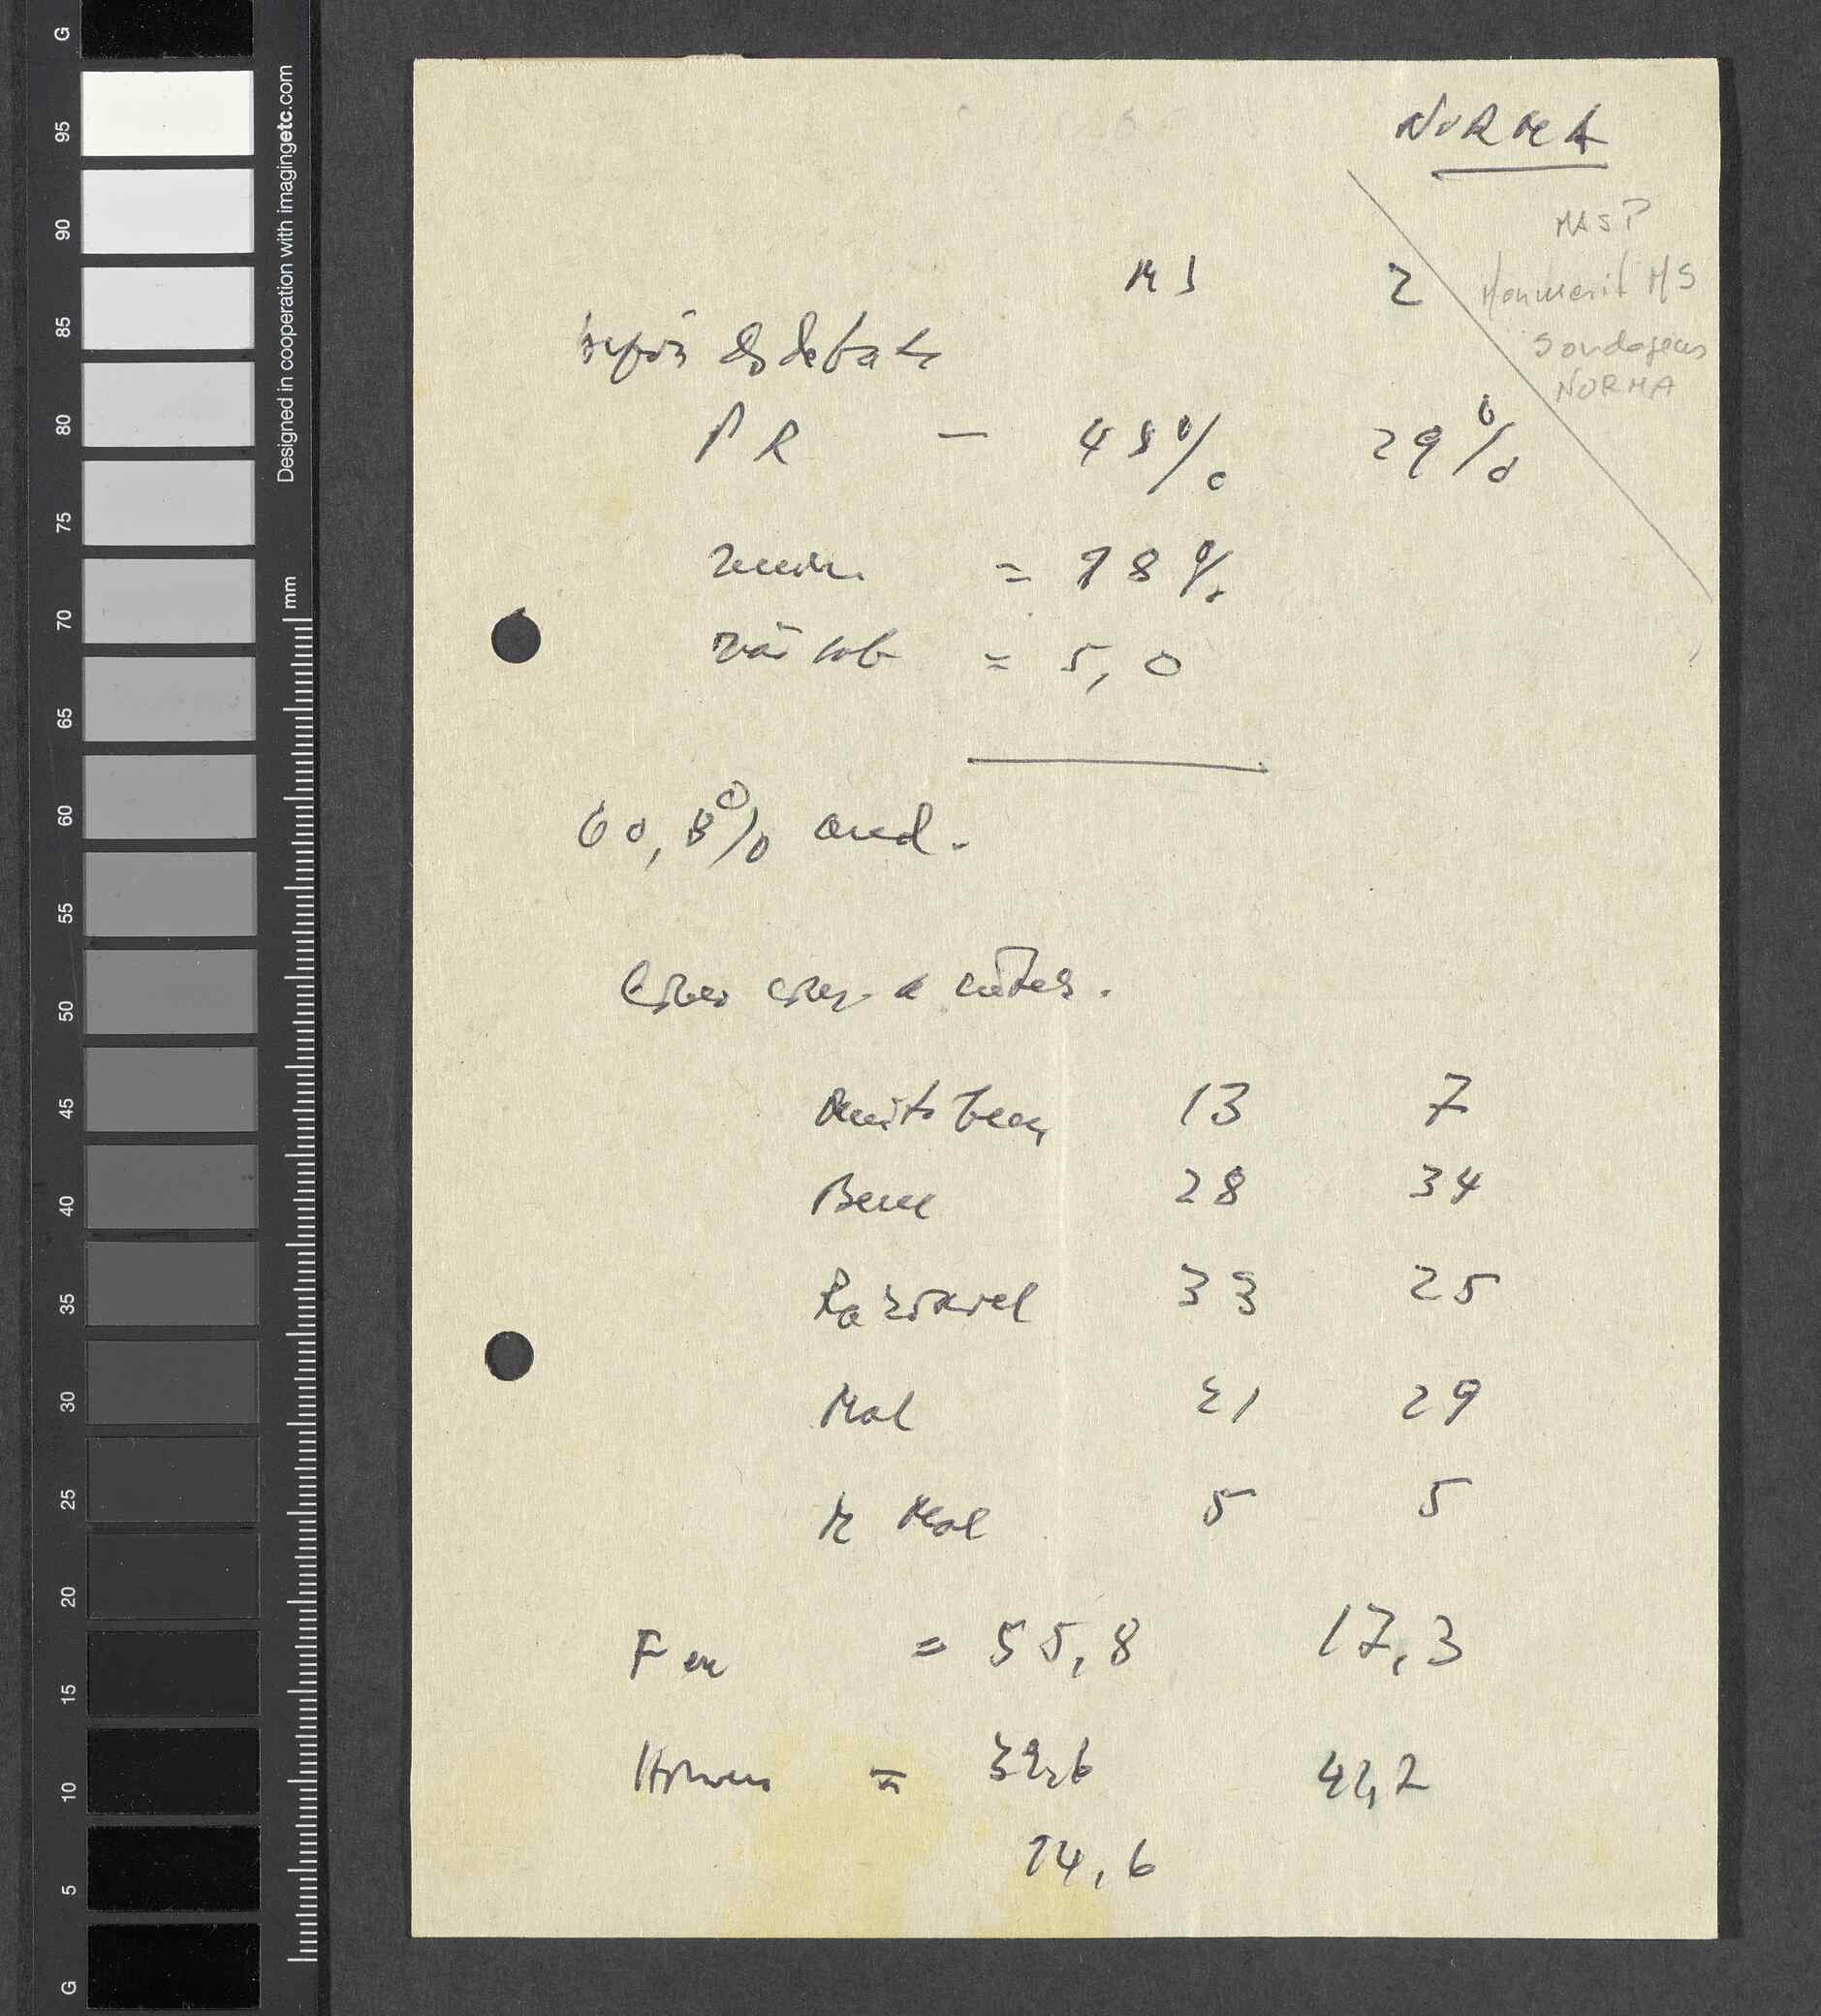 NORMA
MASP
MS 2 Manuscrit MS
Sondagens
NORMA
após os debates
PR — 48% 29%
= 18%
= 5,0
60,8% aud.
Muito bem 13 7
Bem 28 34
Razoavel 33 25
Mal 21 29
M Mal 5 5
Fem = 55,8 17,3
Homens = 39,6 42,2
14,6
G
95
90
85
80
75
70
65
60
55
50
45
40
35
30
25
20
15
10
5
G
mm
Designed in cooperation with imagingetc.com